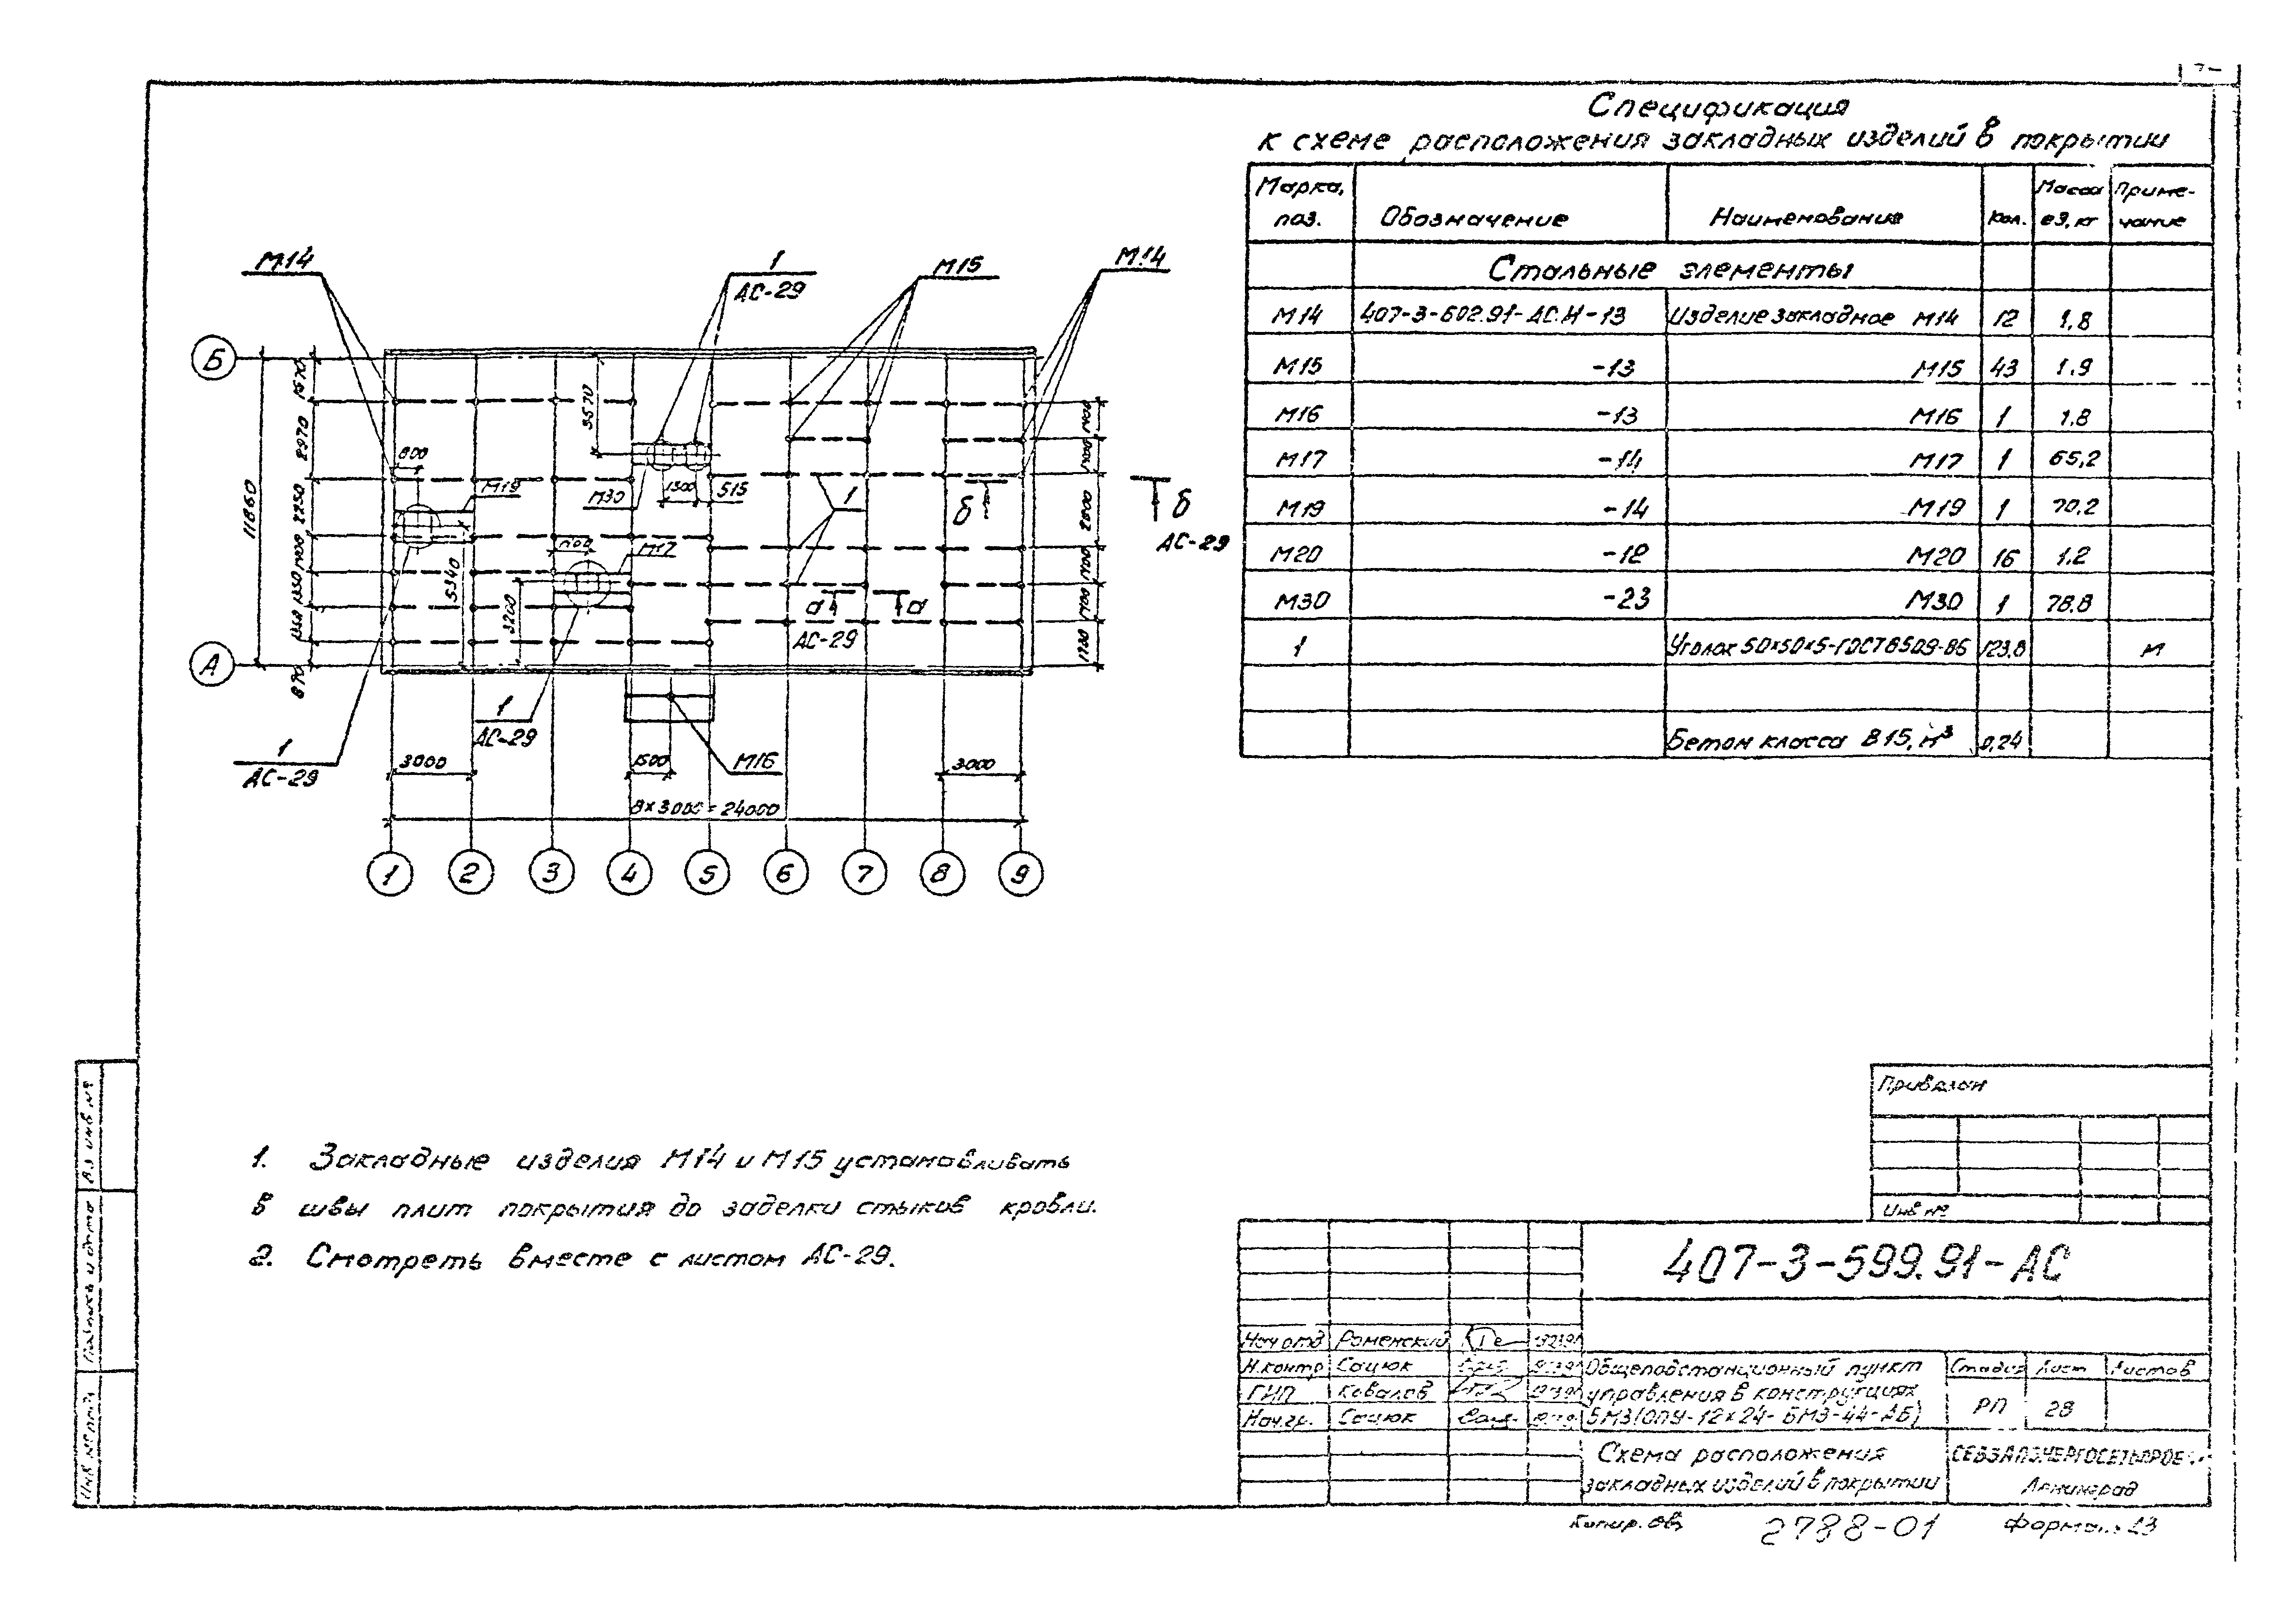 Спецификация
к схеме расположения закладных изделий в покрытии
Марка, поз. Обозначение Наименование Кол. Масса ед, кг Приме-чание
Стальные элементы
М14 407-3-602.91-АС.И-13 Изделие закладное М14 12 1,8
М15 -13 М15 43 1,9
М16 -13 М16 1 1,8
М17 -14 М17 1 65,2
М19 -14 М19 1 70,2
М20 -12 М20 16 1.2
М30 -23 М30 1 78.8
1 Уголок 50х50х5-ГОСТ8509-86 123,8 м
Бетон класса В15, м³ 0,24
М14
1
АС-29
М15
М14
Б
А
1570
2970
2250
1400
1350
1350
870
11860
800
М19
5340
3570
М30
1300
515
1
М17
3200
б
б
АС-29
а
а
АС-29
1400
1400
2800
1400
1400
1720
1
АС-29
1
АС-29
М16
3000
1500
3000
8х3000=24000
1 2 3 4 5 6 7 8 9
1. Закладные изделия М14 и М15 устанавливать
в швы плит покрытия до заделки стыков кровли.
2. Смотреть вместе с листом АС-29.
Привязан
Инв №
407-3-599.91-АС
Нач отд Роменский
Н.контр Сацюк
ГИП Ковалев
Нач.гр. Сацюк
Общеподстанционный пункт
управления в конструкциях
БМЗ(ОПУ-12х24-БМЗ-44-АБ)
Стадия Лист Листов
РП 28
Схема расположения
закладных изделий в покрытии
Ленинград
Взинв №
Подпись и дата
Инв № подл
Копир.
2788-01